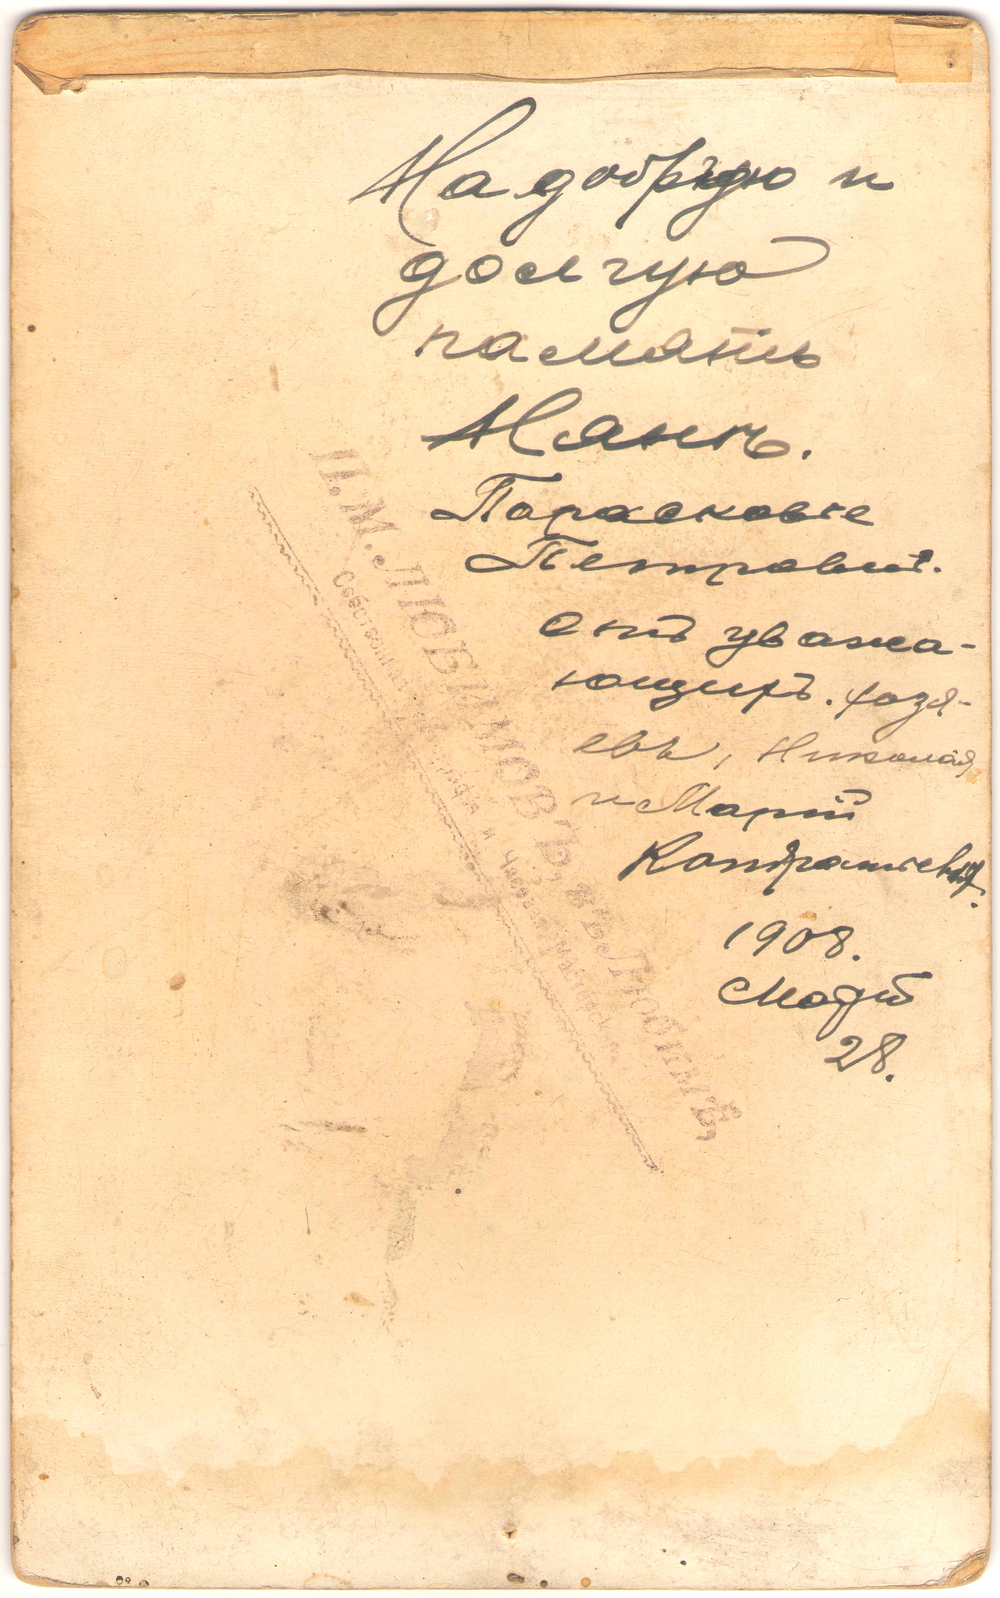 На добрую и
долгую
память
Нянѣ.
Парасковіе
Петровнѣ.
отъ уважа-
ющихъ. хозя-
евъ, Николая
и Маріи
Кондратьевых.
1908.
Маія
28.
П. М. ЛЮБИМОВЪ, въ ЛЮБИМѢ,
Собственная